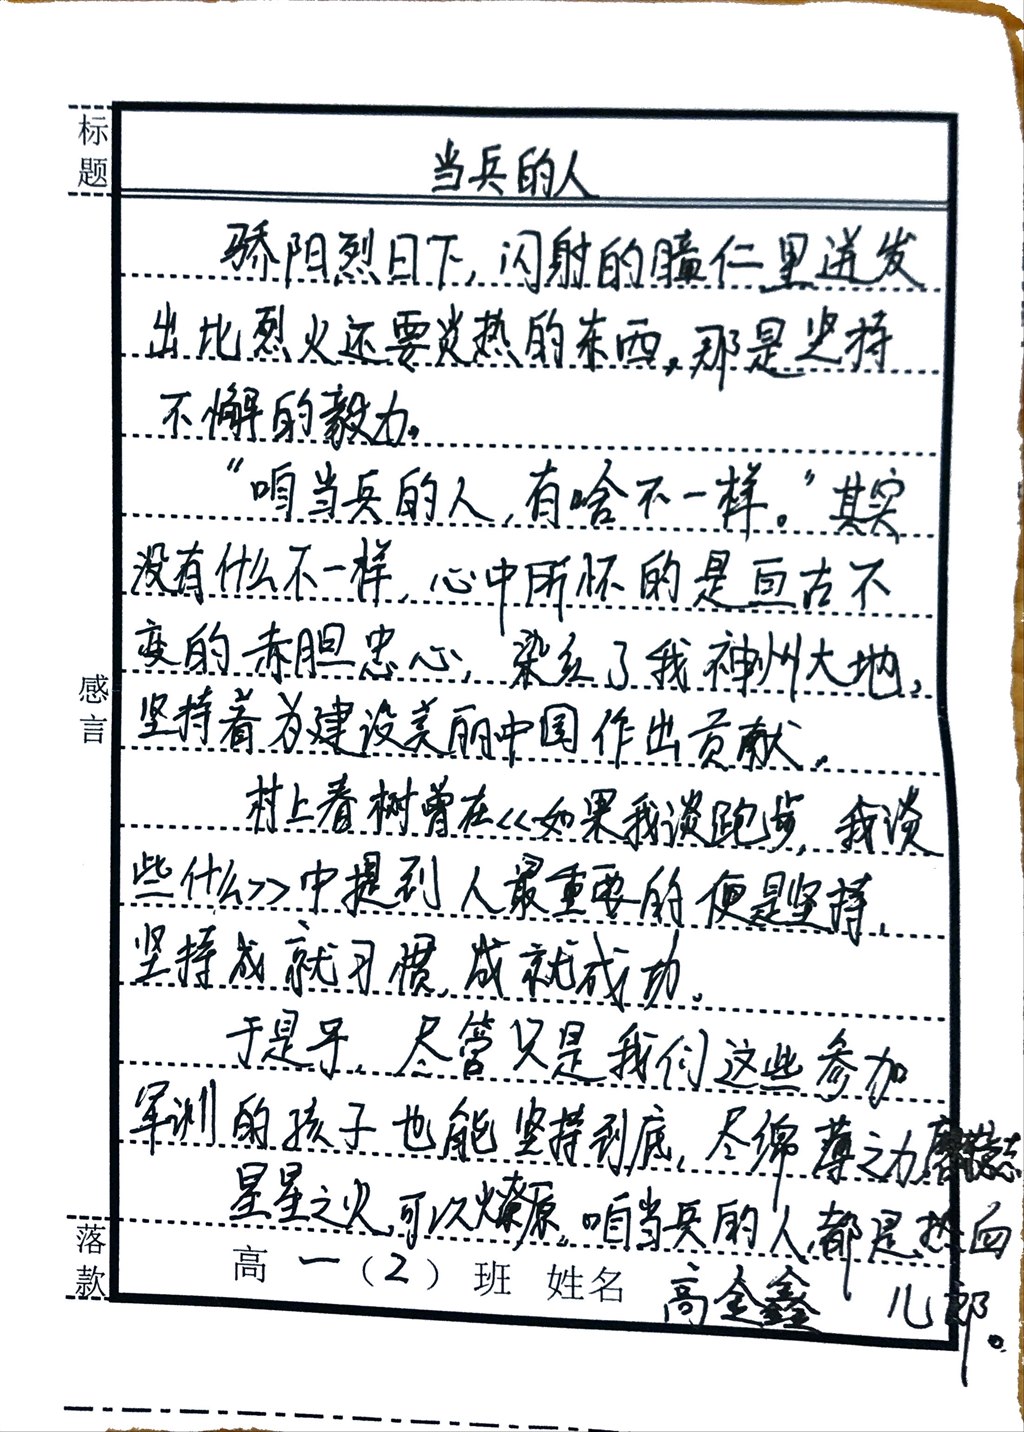 标题
当兵的人
骄阳烈日下，闪射的瞳仁里迸发
出比烈火还要炎热的东西，那是坚持
不懈的毅力。
“咱当兵的人，有啥不一样。”其实
没有什么不一样，心中所怀的是亘古不
变的赤胆忠心，染红了我神州大地，
坚持着为建设美丽中国作出贡献。
村上春树曾在<<如果我谈跑步，我谈
些什么>>中提到人最重要的便是坚持，
坚持成就习惯，成就成功。
感言
于是乎，尽管只是我们这些参加
军训的孩子也能坚持到底，尽绵薄之力
星星之火，可以燎原。咱当兵的人，都是热血
儿郎。
落款
高一（2）班 姓名 高金鑫